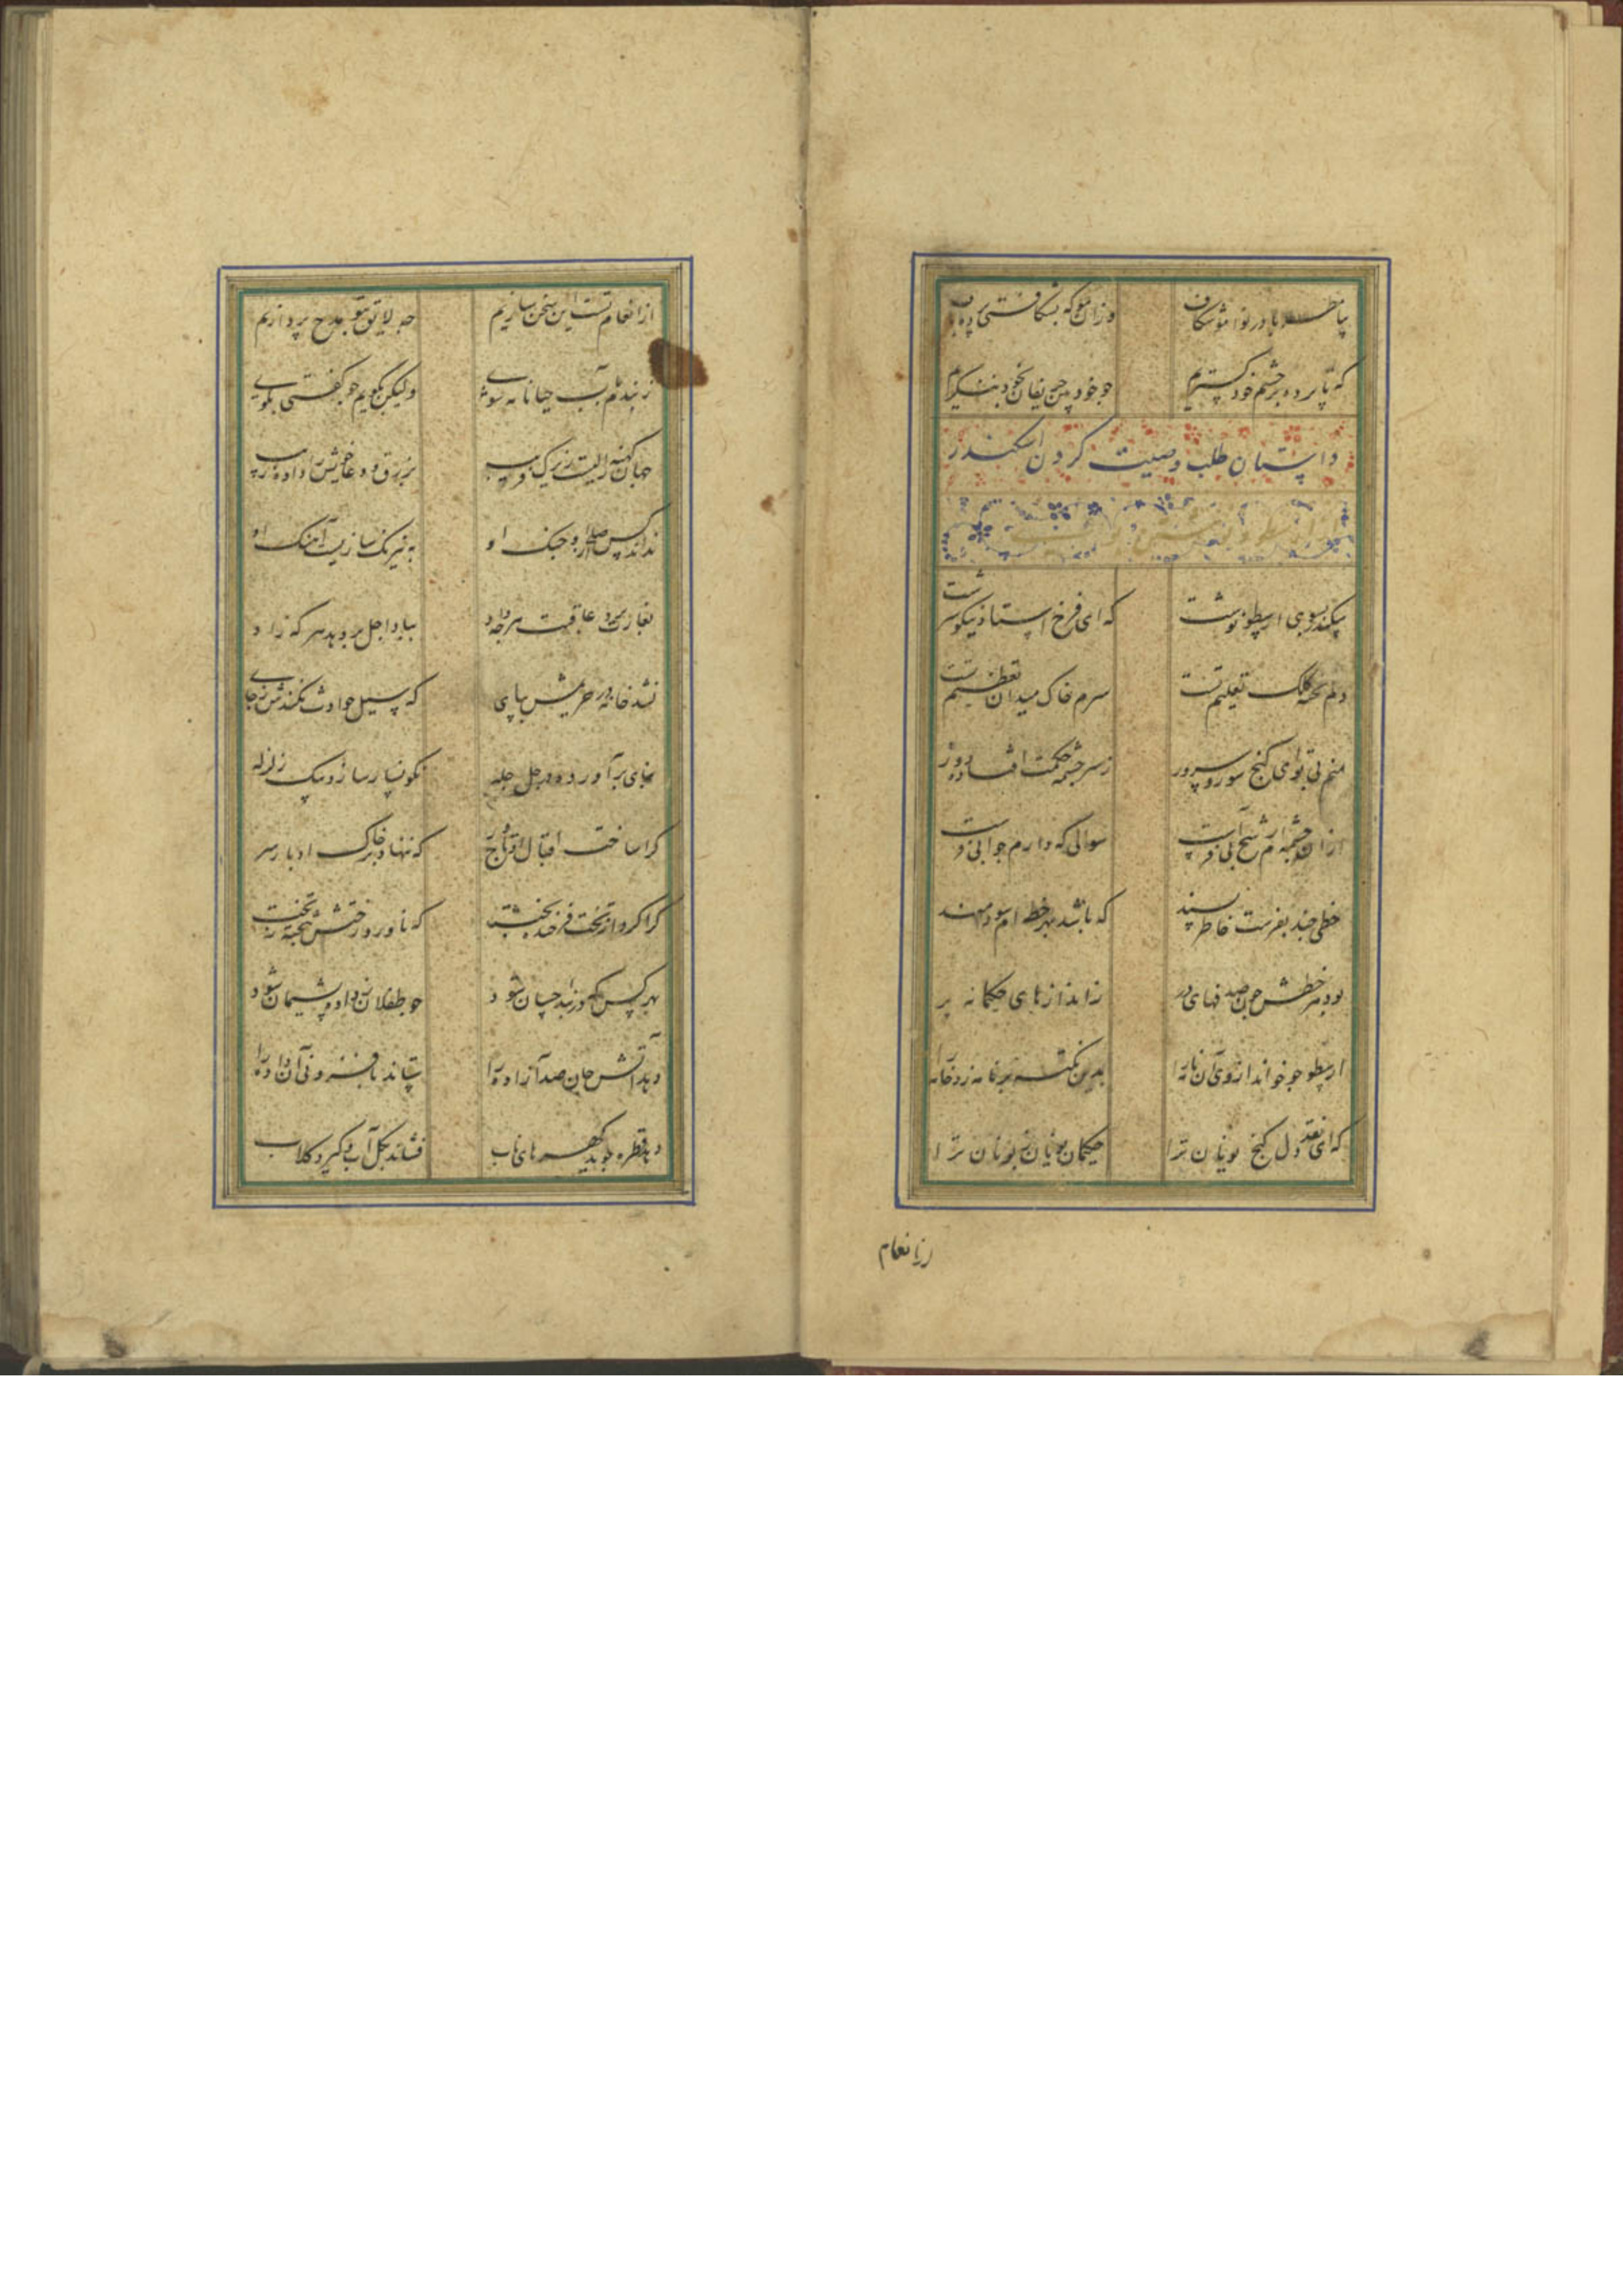 بیا مطربا در نوا موشکاف وزان مو که بشکافتی پرده باف
که تا پرده بر چشم خود گستریم چو خود بین حریفان بخود ننگریم
داستان طلب وصیت کردن اسکندر
سکندر بسوی ارسطو نوشت که ای فرخ استاد نیکو سرشت
دلم تخته کلک تعلیم تست سرم خاک میدان تعظیم تست
منم بی تو ای گنج سور و سرور ز سرچشمه حکمت افتاده دور
از آن چشمه ام رشح آبی فرست سوالی که دارم جوابی فرست
خطی چند بفرست خاطر پسند که باشد بهر خطه ام سودمند
بود هر خطش چون صدفهای در ز اندازهای حکیمانه پر
ارسطو چو خواند از وی آن نامه را بدین نکته بر نامه زد خامه را
که ای نقد دل گنج یونان ترا حکیمان یونان ترا
از انعام
از انعام تست این سخن سازیم چه لایق بتو مدح پردازیم
ولیکن بگویم چو گفتی بگوی
جهان کهنه زالیست زیرک فریب بزرق و دغا خویش را داده زیب
نداند کس صلح او جنگ او به نیرنگ سازیست آهنگ او
بغارت برد عاقبت هرچه داد بباد اجل بر دهد هر که زاد
نشد خانه در حریمش بپای که سیل حوادث نکندش ز جای
بنای برآورده در چل چله نگونسار سازد بیک زلزله
کرا ساخت اقبال او تاجور که ننهاد بر خاک ادبار سر
کرا کرد از تخت فرخنده بخت که ناورد رختش به تخته ز تخت
بهر کس که ورزید چسان شود چو طفلان ز داده پشیمان شود
دهد آتش جان صد آزاده را ستاند بافزونی آن داده را
دهد قطره گوید گهرهای ناب فشاند بگل آب و گیرد گلاب